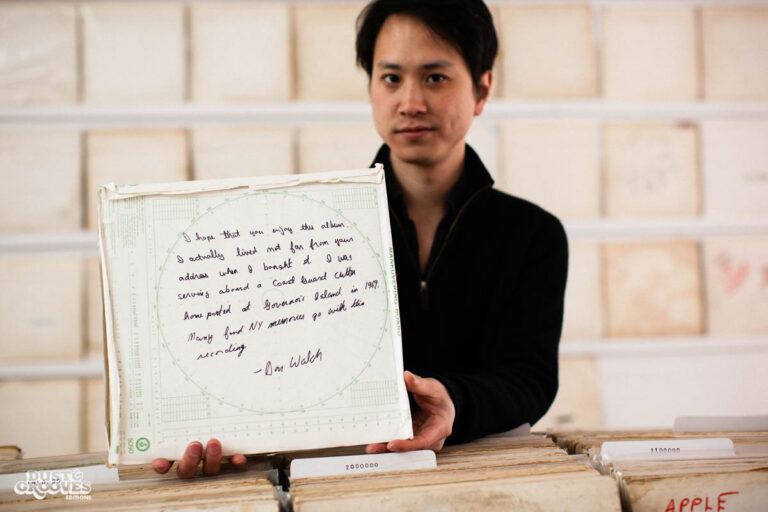 I hope that you enjoy this album.
I actually lived not far from your
address when I bought it. I was
serving aboard a Coast Guard Cutter
home ported at Governor's Island in 1969.
Many fond NY memories go with this
recording
- Don Walsh
2000000
2100000
APPLE
DUST & GROOVES
EDITIONS